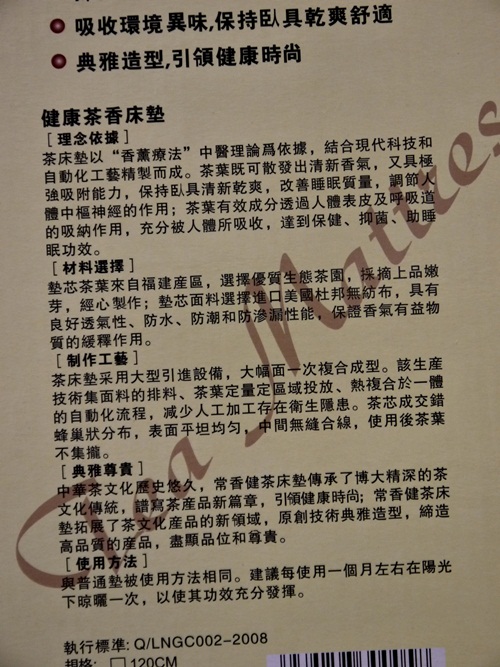 吸收環境異味,保持臥具乾爽舒適
典雅造型,引領健康時尚
健康茶香床墊
[理念依據]
茶床墊以“香薰療法”中醫理論爲依據，結合現代科技和
自動化工藝精製而成。茶葉既可散發出清新香氣，又具極
強吸附能力，保持臥具清新乾爽，改善睡眠質量，調節人
體中樞神經的作用；茶葉有效成分透過人體表皮及呼吸道
的吸納作用，充分被人體所吸收，達到保健、抑菌、助睡
眠功效。
[材料選擇]
墊芯茶葉來自福建産區，選擇優質生態茶園，採摘上品嫩
芽，經心製作；墊芯面料選擇進口美國杜邦無紡布，具有
良好透氣性、防水、防潮和防滲漏性能，保證香氣有益物
質的緩釋作用。
[制作工藝]
茶床墊采用大型引進設備，大幅面一次複合成型。該生産
技術集面料的排料、茶葉定量定區域投放、熱複合於一體
的自動化流程，减少人工加工存在衛生隱患。茶芯成交錯
蜂巢狀分布，表面平坦均匀，中間無縫合線，使用後茶葉
不集攏。
[典雅尊貴]
中華茶文化歷史悠久，常香健茶床墊傳承了博大精深的茶
文化傳統，譜寫茶産品新篇章，引領健康時尚；常香健茶床
墊拓展了茶文化産品的新領域，原創技術典雅造型，締造
高品質的産品，盡顯品位和尊貴。
[使用方法]
與普通墊被使用方法相同。建議每使用一個月左右在陽光
下晾曬一次，以使其功效充分發揮。
執行標準: Q/LNGC002-2008
規格: □120CM
Tea Mattres